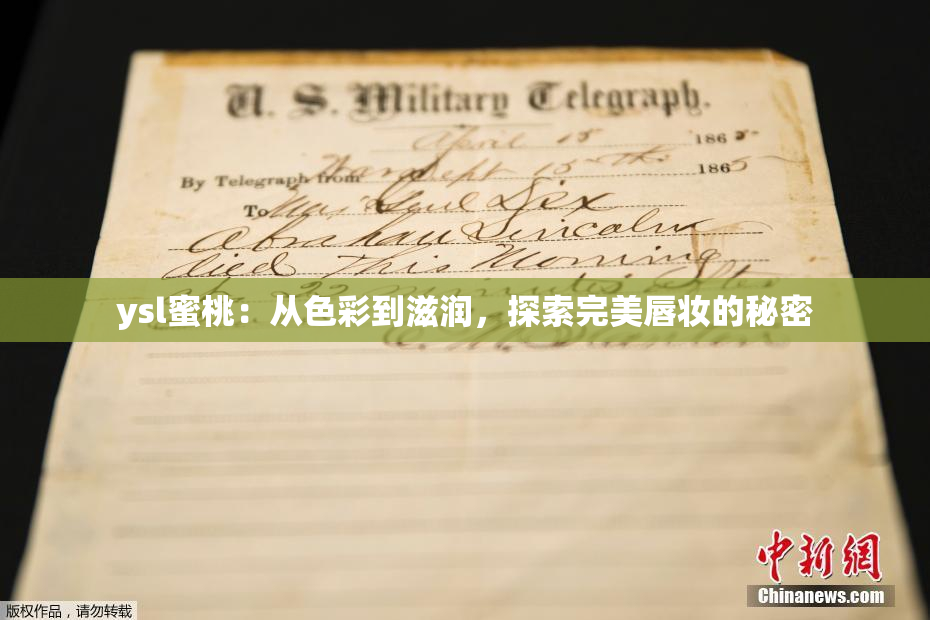 U. S. Military Telegraph.
April 15 1865
By Telegraph from War Dept 15th 1865
To Maj Genl Dix
Abraham Lincoln
died this morning
at 22 minutes after
ysl蜜桃：从色彩到滋润，探索完美唇妆的秘密
E. M. Stanton
中新網
Chinanews.com
版权作品，请勿转载